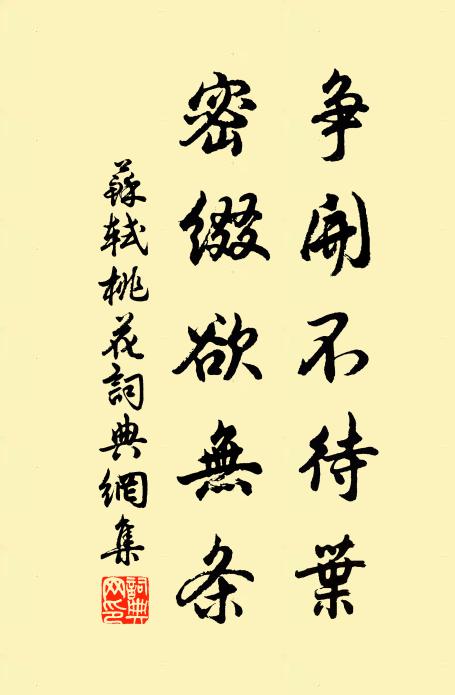 争開不待葉
密缀欲無条
蘇軾桃花詞典網集
詞典
网印